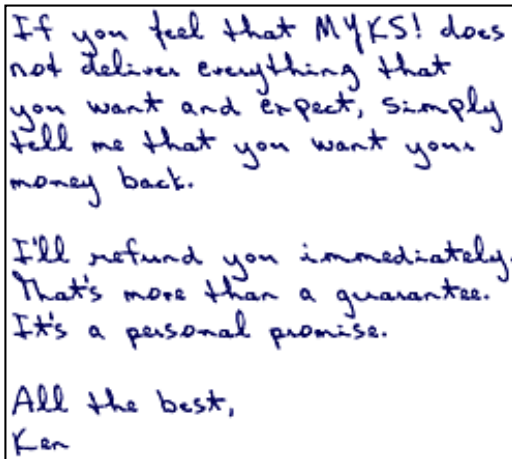 If you feel that MYKS! does
not deliver everything that
you want and expect, simply
tell me that you want your
money back.

I'll refund you immediately.
That's more than a guarantee.
It's a personal promise.

All the best,
Ken